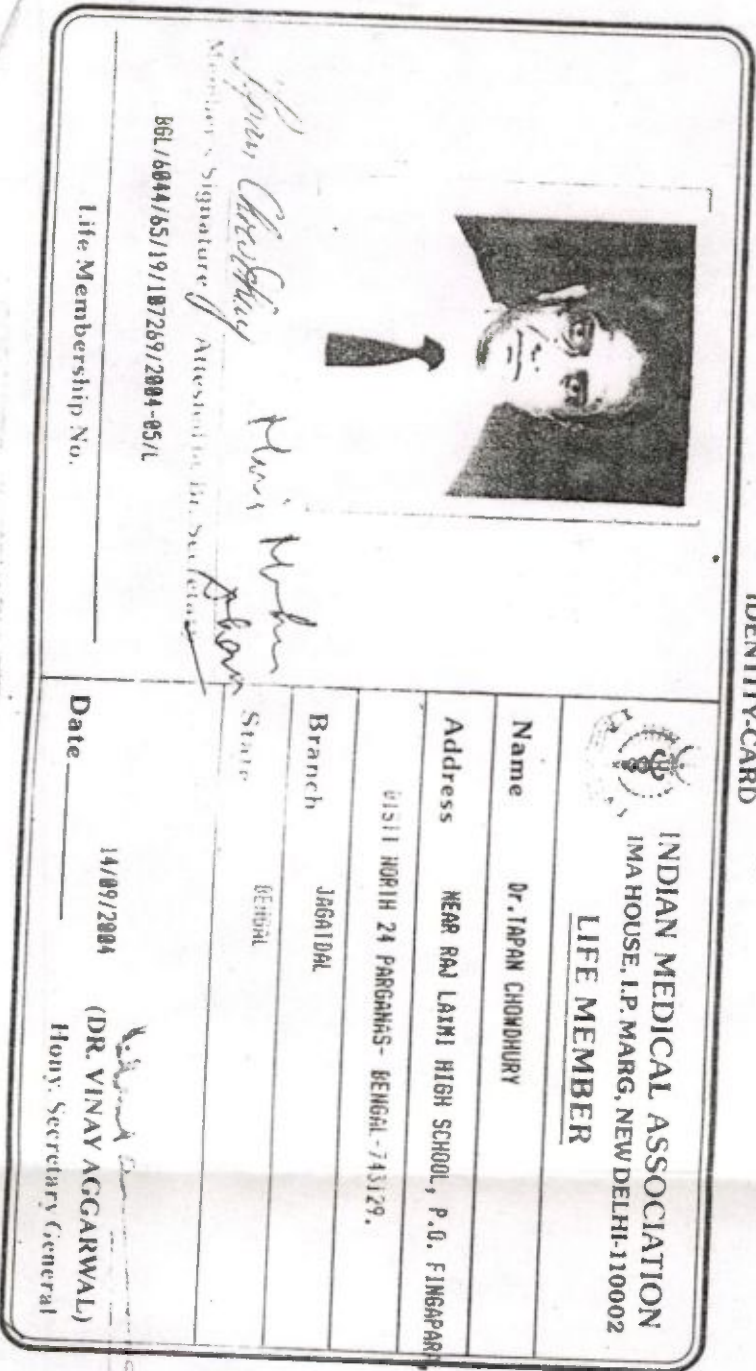 IDENTITY-CARD
INDIAN MEDICAL ASSOCIATION
IMA HOUSE, I.P. MARG, NEW DELHI-110002
LIFE MEMBER
Name Dr.TAPAN CHOWDHURY
Address NEAR RAJ LAXMI HIGH SCHOOL, P.O. FINGAPARA
DISTT NORTH 24 PARGANAS- BENGAL-743129.
Branch JAGATDAL
State BENGAL
Date 14/09/2004
(DR. VINAY AGGARWAL)
Hony. Secretary General
Chowdhury
Member's Signature Attested by Br. Secretary
BGL/6044/65/19/107269/2004-05/L
Life Membership No.